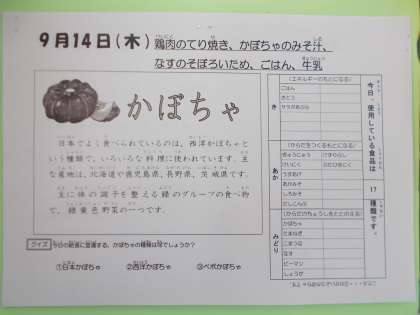 9月14日(木) 鶏肉のてり焼き、かぼちゃのみそ汁、
なすのそぼろいため、ごはん、牛乳
かぼちゃ
日本でよく食べられているのは、西洋かぼちゃと
いう種類で、いろいろな料理に使われています。主
な産地は、北海道や鹿児島県、長野県、茨城県です。
主に体の調子を整える緑のグループの食べ物
で、緑黄色野菜の一つです。
クイズ 今日の給食に登場する、かぼちゃの種類は何でしょうか?
①日本かぼちゃ ②西洋かぼちゃ ③ペポかぼちゃ
今日、使用している食品は
17
種類です。
き
(エネルギーのもとになる)
ごはん
さとう
サラダあぶら
あか
(からだをつくるもとになる)
ぎゅうにゅう
けいにく
あぶらあげ
あかみそ
しろみそ
だしこんぶ
みどり
(からだのちょうしをととのえる)
かぼちゃ
たまねぎ
こまつな
なす
ピーマン
しょうが